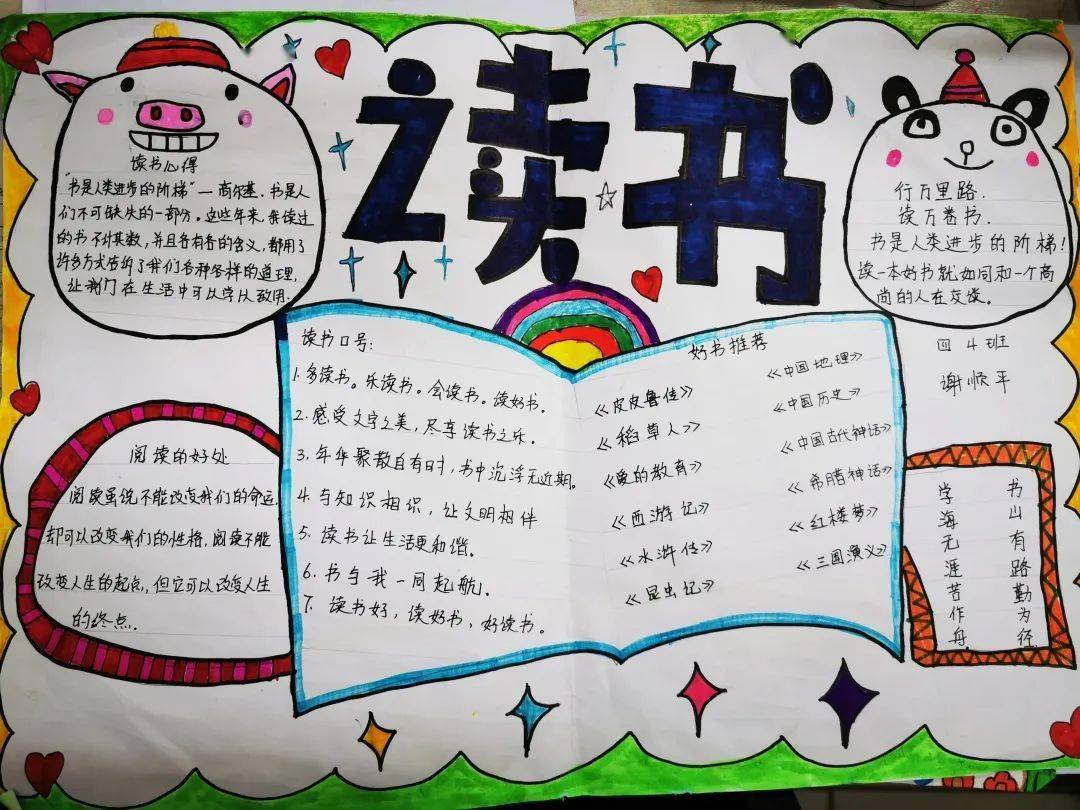 读书
读书心得
"书是人类进步的阶梯"—高尔基.书是人
们不可缺失的一部分。这些年来,我读过
的书不计其数,并且各有各的含义,都用了
许多方式告诉了我们各种各样的道理,
让我们在生活中可以学以致用.
行万里路.
读万卷书.
书是人类进步的阶梯!
读一本好书就如同和一个高
尚的人在交谈。
四 4班
谢顺平
读书口号:
1.多读书。乐读书。会读书。读好书.
2.感受文字之美,尽享读书之乐。
3.年华聚散自有时,书中沉浮无近期。
4.与知识相识,让文明相伴
5.读书让生活更和谐。
6.书与我一同起航.
7.读书好,读好书,好读书。
好书推荐
《皮皮鲁传》
《稻草人》
《爱的教育》
《西游记》
《水浒传》
《昆虫记》
《中国地理》
《中国历史》
《中国古代神话》
《希腊神话》
《红楼梦》
《三国演义》
阅读的好处
阅读虽说不能改变我们的命运,
却可以改变我们的性格,阅读不能
改变人生的起点,但它可以改变人生
的终点.
书山有路勤为径.
学海无涯苦作舟.